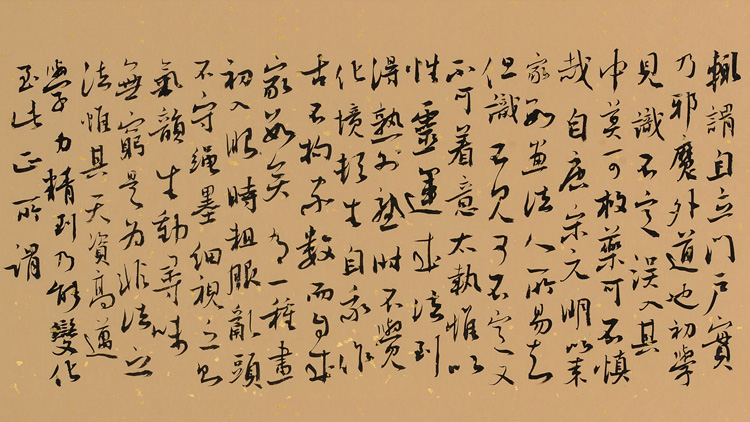 輒謂自立門戶實
乃邪魔外道也初學
見識不定誤入其
中莫可救藥可不慎
哉自唐宋元明以来
家數畫法人所易知
但識不見可不定又
不可着意太執惟以
性靈運成法到
得熟外熟時不覺
化境頓生自我作
古不拘家數而自成
家數矣有一種畫
初入眼時粗服亂頭
不守繩墨細視之則
氣韻生動尋味
無窮是為非法之
法惟其天資高邁
學力精到乃能變化
至此正所謂